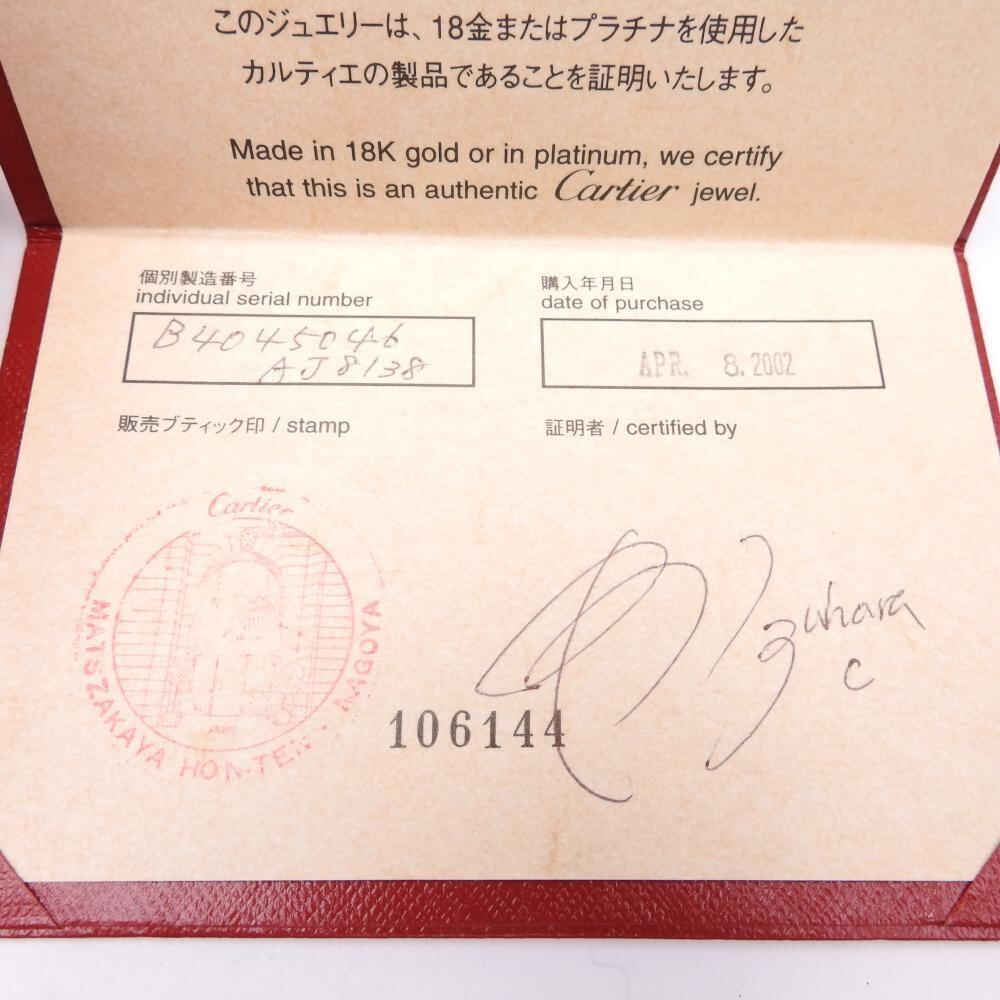 このジュエリーは、18金またはプラチナを使用した
カルティエの製品であることを証明いたします。
Made in 18K gold or in platinum, we certify
that this is an authentic Cartier jewel.
個別製造番号
individual serial number
B4045046
AJ8138
購入年月日
date of purchase
APR. 8.2002
販売ブティック印 / stamp
証明者 / certified by
Cartier
MATSZAKAYA HON-TEN - NAGOYA
PARIS
106144
C